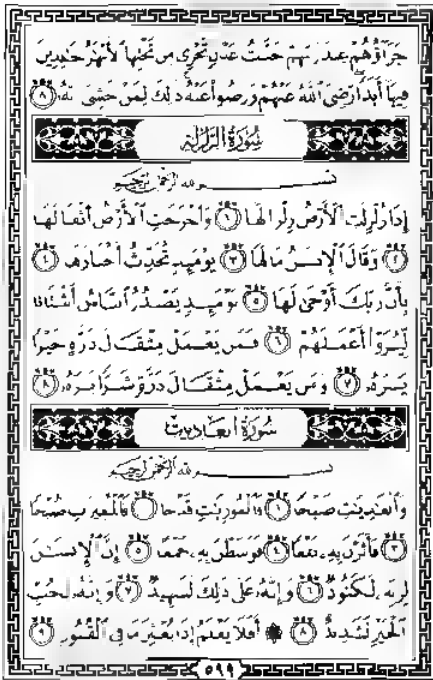 جَزَآؤُهُمْ عِندَ رَبِّهِمْ جَنَّٰتُ عَدْنٍ تَجْرِى مِن تَحْتِهَا ٱلْأَنْهَٰرُ خَٰلِدِينَ
فِيهَآ أَبَدًا رَّضِىَ ٱللَّهُ عَنْهُمْ وَرَضُوا۟ عَنْهُ ذَٰلِكَ لِمَنْ خَشِىَ رَبَّهُۥ ٨
سُورَةُ الزَّلْزَلَة
بِسْمِ ٱللَّهِ ٱلرَّحْمَٰنِ ٱلرَّحِيمِ
إِذَا زُلْزِلَتِ ٱلْأَرْضُ زِلْزَالَهَا ١ وَأَخْرَجَتِ ٱلْأَرْضُ أَثْقَالَهَا
٢ وَقَالَ ٱلْإِنسَٰنُ مَا لَهَا ٣ يَوْمَئِذٍ تُحَدِّثُ أَخْبَارَهَا ٤
بِأَنَّ رَبَّكَ أَوْحَىٰ لَهَا ٥ يَوْمَئِذٍ يَصْدُرُ ٱلنَّاسُ أَشْتَاتًا
لِّيُرَوْا۟ أَعْمَٰلَهُمْ ٦ فَمَن يَعْمَلْ مِثْقَالَ ذَرَّةٍ خَيْرًا
يَرَهُۥ ٧ وَمَن يَعْمَلْ مِثْقَالَ ذَرَّةٍ شَرًّا يَرَهُۥ ٨
سُورَةُ العَادِيَات
بِسْمِ ٱللَّهِ ٱلرَّحْمَٰنِ ٱلرَّحِيمِ
وَٱلْعَٰدِيَٰتِ ضَبْحًا ١ فَٱلْمُورِيَٰتِ قَدْحًا ٢ فَٱلْمُغِيرَٰتِ صُبْحًا
٣ فَأَثَرْنَ بِهِۦ نَقْعًا ٤ فَوَسَطْنَ بِهِۦ جَمْعًا ٥ إِنَّ ٱلْإِنسَٰنَ
لِرَبِّهِۦ لَكَنُودٌ ٦ وَإِنَّهُۥ عَلَىٰ ذَٰلِكَ لَشَهِيدٌ ٧ وَإِنَّهُۥ لِحُبِّ
ٱلْخَيْرِ لَشَدِيدٌ ٨ ۞ أَفَلَا يَعْلَمُ إِذَا بُعْثِرَ مَا فِى ٱلْقُبُورِ ٩
٥٩٩